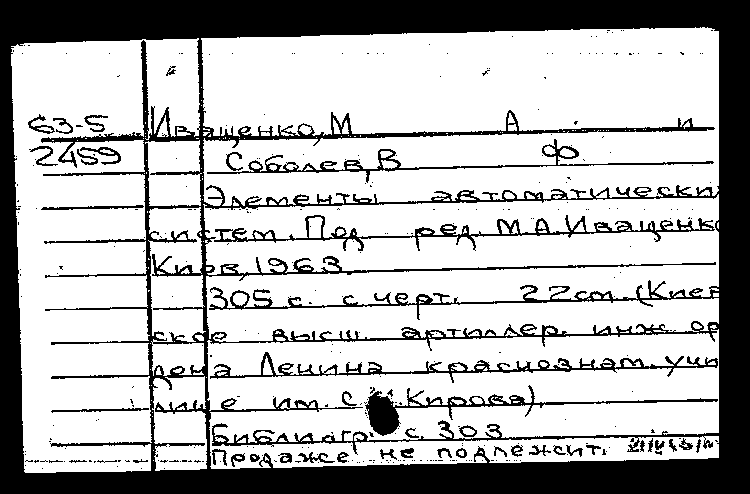 63-5 Иващенко, М А. и
2459 Соболев, В Ф
Элементы автоматически
систем. Под ред. М.А.Иващенко
Киев, 1963
305 с. с черт. 22см. (Киев
ское высш. артиллер. инж ор
дена Ленина краснознам. учи
лище им. С Кирова).
Библиогр. с. 303
Продаже не подлежит.